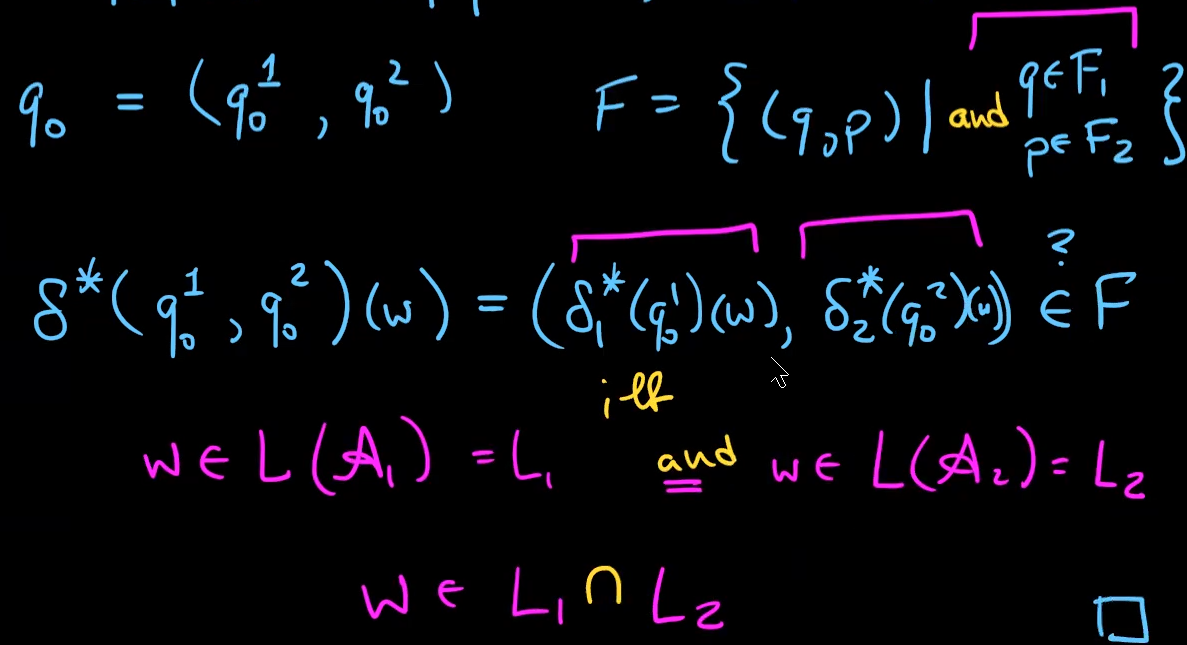 q₀ = (q₀¹, q₀²) F = {(q,p) | and q∈F₁
p∈F₂}
δ*(q₀¹, q₀²)(w) = (δ₁*(q₀¹)(w), δ₂*(q₀²)(w)) ∈? F
iff
w ∈ L(A₁) = L₁ and w ∈ L(A₂) = L₂
w ∈ L₁ ∩ L₂ □